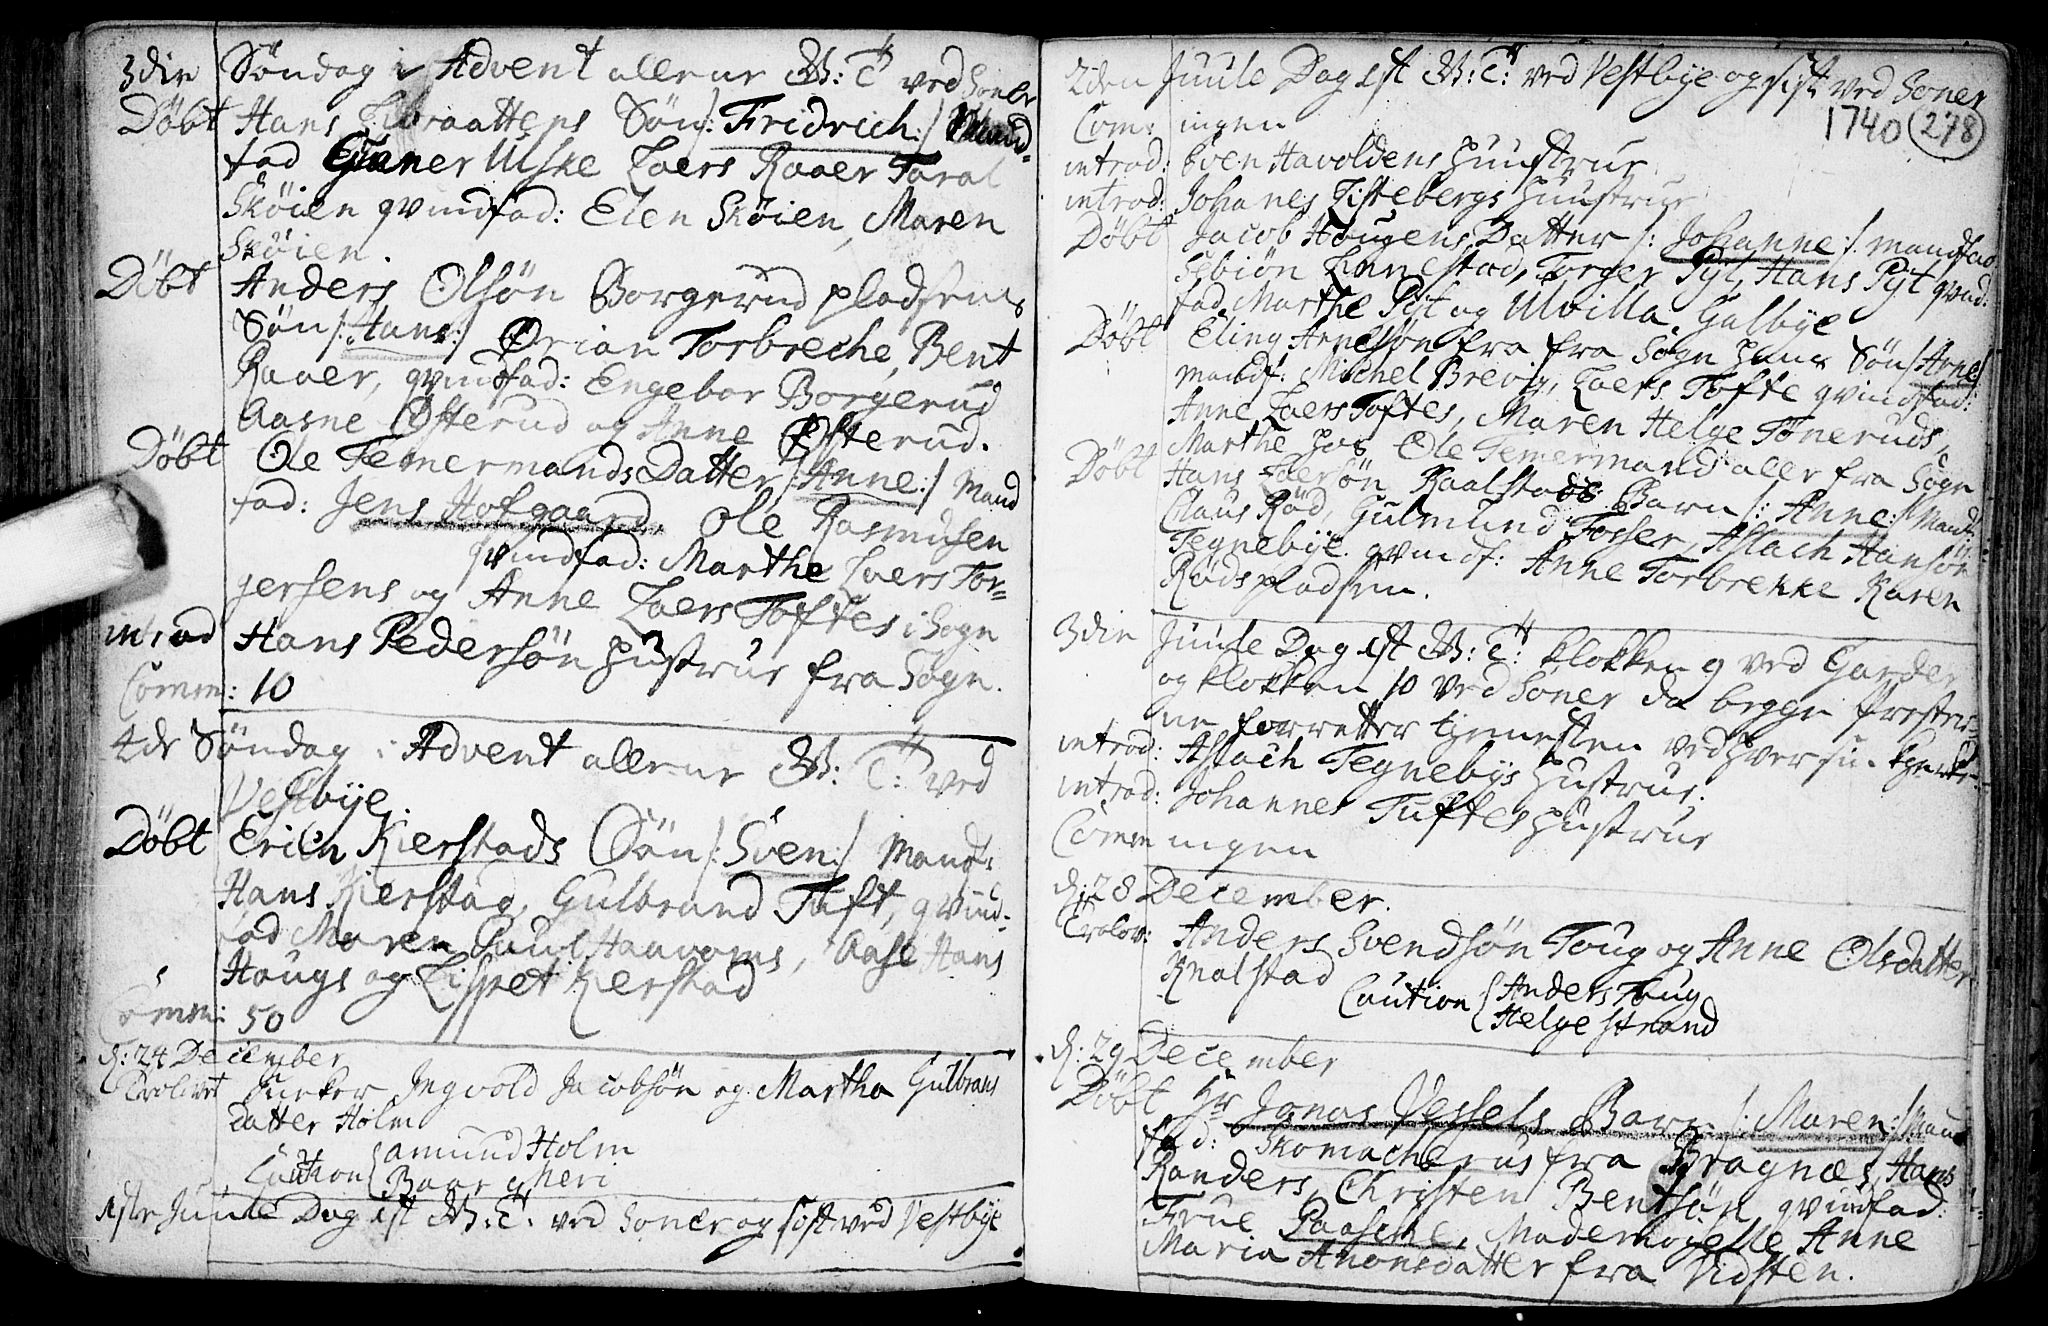 3die Søndag i Advent allene W: T: ved Soner
Døbt Hans Søn /: Fridrich :/ Mand-
fad Gunner Ulske Laers Raaer Taral
Skøien qvindfad: Elen Skøien, Maren
Skøien.
Døbt Anders Olsøn Borgerud pladsens
Søn /: Hans :/ Ørian Torbreche, Bent
Raaer, qvindfad: Engebor Borgerud
Aasne Østerud og Anne Østerud.
Døbt Ole Temermands Datter /: Anne :/ Mand
fad: Jens Hofgaard, Ole Rasmusen
qvindfad: Marthe Laers Tor=
gersens og Anne Laers Toftes i Sogn
introd Hans Pedersøn Hustrue fra Sogn.
Comm: 10
4de Søndag i Advent allene W: T: ved
Vestbye.
Døbt Erich Kierstads Søn /: Sven :/ Mandf:
Hans Kierstad, Gulbrand Tuft, qvind-
fad Maren Paul Haavarns, Aase Hans
Haugs og Lispet Kierstad
Comm: 50
d: 24 December
Trolovet Ingvold Jacobsøn og Martha Gulbrans
datter Holm
Caution { Amund Holm
Baar
1ste Juule Dag est W: T: ved Soner og sist ved Vestbye
2den Juule Dag est W: T: ved Vestbye og sist ved Soner
1740 278
Com: ingen
introd: Even Havoldens Huustrue
introd: Johanes Listebergs Huustrue
Døbt Jacob Hougens Datter /: Johanne :/ mandfad
Sebiøn Linnestad, Torger Pyt, Hans Pyt qvind:
fad, Marthe Pyt og Ulvilla Galbye
Døbt Eling Arnesøn fra fra Sogn Hans Søn /: Arne :/
mandf: Michel Brevig, Laers Tofte qvindfad:
Anne Laers Toftes, Maren Helge Tøneruds,
Marthe hos Ole Temermands alle fra Sogn
Døbt Hans Laersøn Raalstads Barn /: Anne :/ Mand:
Claus Rød, Gulmund Fosser, Aslach Hansøn
Tegnebye qvindf: Anne Torbrekke Karen
Røds pladsen.
3die Juule Dag est W: T: klokken 9 ved Garder
og klokken 10 ved Soner da begge Prester-
ne forretter tjenesten ved hver sin kirke
introd: Aslach Tegnebys Hustrue;
introd: Johannes Tuftes Hustrue
Comm ingen
d: 28 December.
Trolov: Anders Svendsøn Toug og Anne Olsdatter
Knalstad
Caution { Anders Toug
Helge Strand
d: 29 December
Døbt Hr Jonas Vessels Barn /: Maren :/ Mand
fad: Skomacherus fra Bragnæs, Hans
Randers, Christen Bentsøn, qvindfad:
Frue Paasche, Mademoyselle Anne
Maria Anonsdatter fra Vidsten.